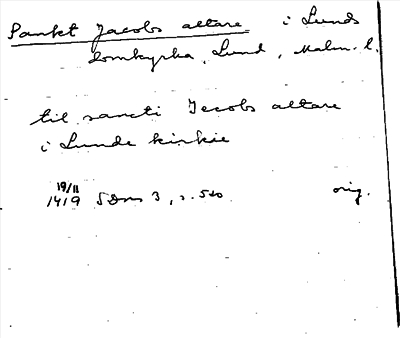 Sankt Jacobs altare i Lunds
domkyrka, Lund, Malm. l.
til sancti Jecobs altare
i Lunde kirkie
19/11
1419 SDns 3, s. 540
orig.